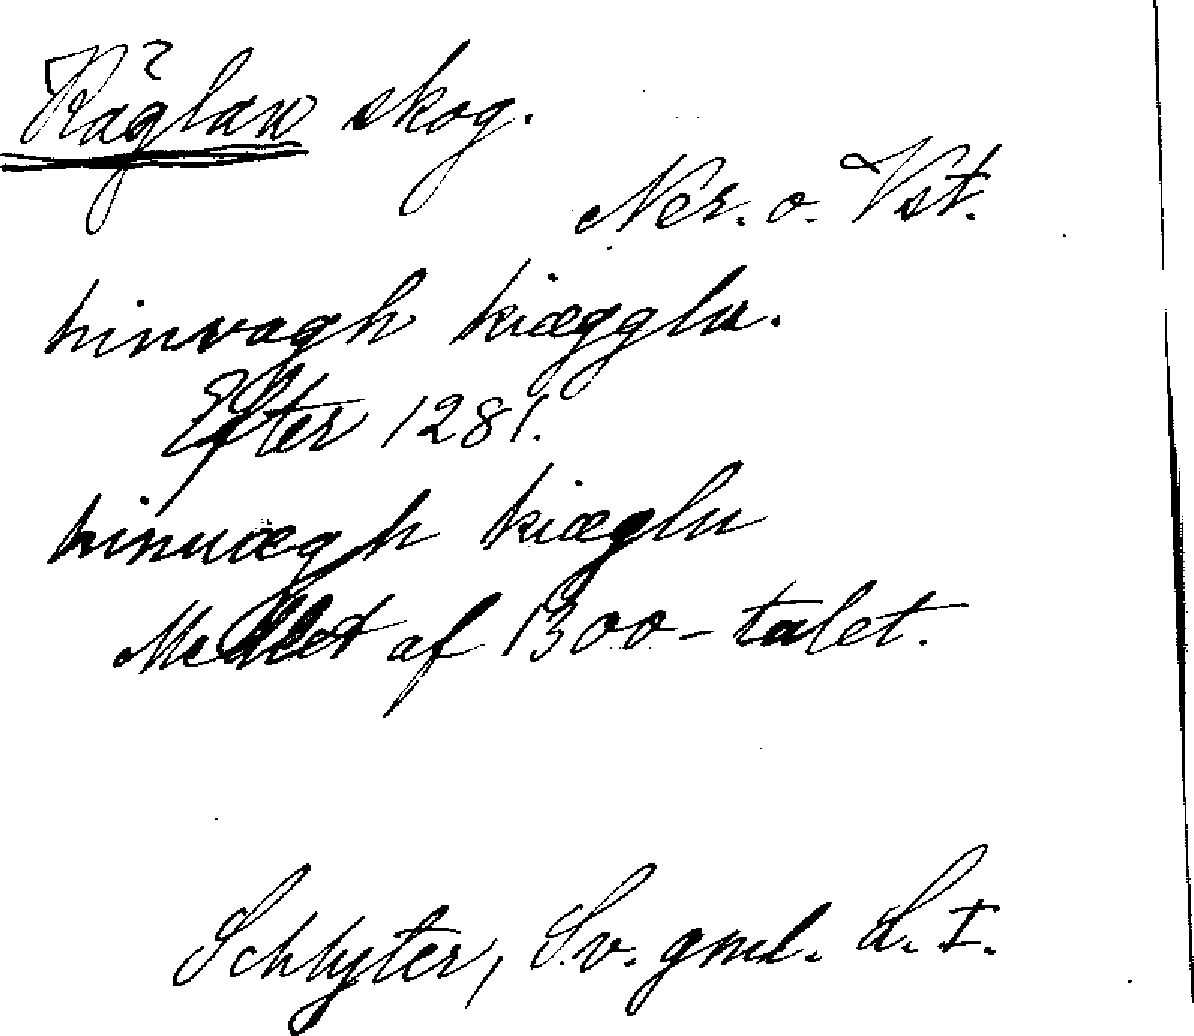 Käglan skog.
Ner. o. Vst.
hinvagh kiægglu.
Efter 1281.
hinuægh kiæglu
Medlet af 1300-talet.
Schlyter, Sv. gml. L. I.